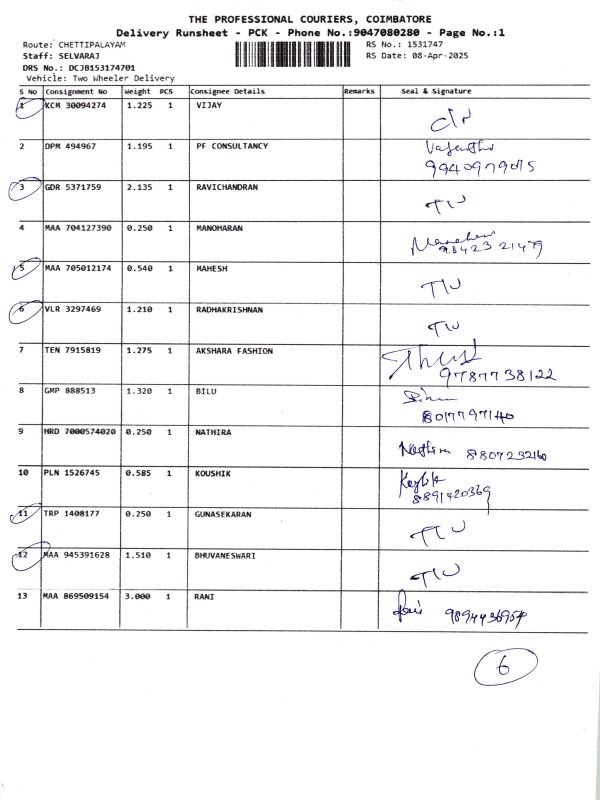 THE PROFESSIONAL COURIERS, COIMBATORE
Delivery Runsheet - PCK - Phone No.:9047080280 - Page No.:1
Route: CHETTIPALAYAM RS No.: 1531747
Staff: SELVARAJ RS Date: 08-Apr-2025
DRS No.: DCJB153174701
Vehicle: Two Wheeler Delivery
S No Consignment No Weight PCS Consignee Details Remarks Seal & Signature
1 KCM 30094274 1.225 1 VIJAY
2 DPM 494967 1.195 1 PF CONSULTANCY
9940979015
3 GDR 5371759 2.135 1 RAVICHANDRAN
4 MAA 704127390 0.250 1 MANOHARAN
98423 21479
5 MAA 705012174 0.540 1 MAHESH
6 VLR 3297469 1.210 1 RADHAKRISHNAN
7 TEN 7915819 1.275 1 AKSHARA FASHION
9787738122
8 GMP 888513 1.320 1 BILU
8017797140
9 HRD 7000574020 0.250 1 NATHIRA Nathira 8807232160
10 PLN 1526745 0.585 1 KOUSHIK
8891420369
11 TRP 1408177 0.250 1 GUNASEKARAN
12 MAA 945391628 1.510 1 BHUVANESWARI
13 MAA 869509154 3.000 1 RANI Rani
6